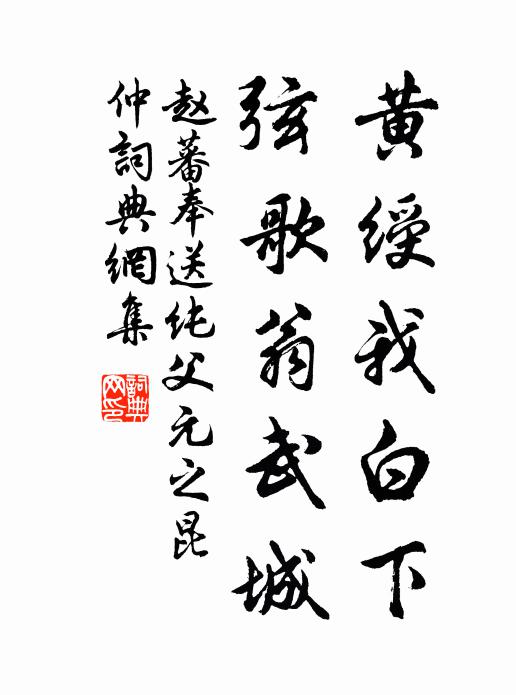 黄绶我白下
弦歌翁武城
赵蕃奉送纯父元之昆
仲詞典網集
詞典网印